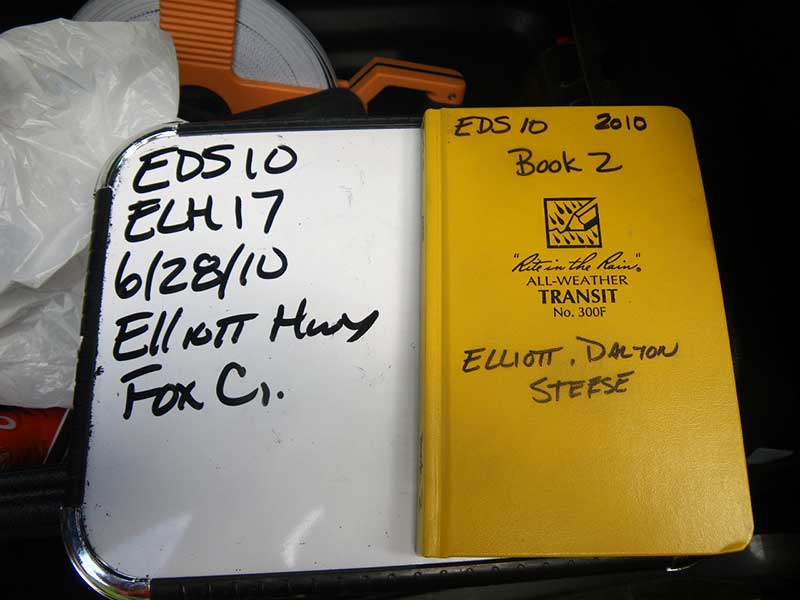 EDS 10
ELH 17
6/28/10
Elliott Hwy
Fox Cr.
EDS 10 2010
Book 2
"Rite in the Rain"®
ALL-WEATHER
TRANSIT
No. 300F
ELLIOTT, DALTON
STEESE